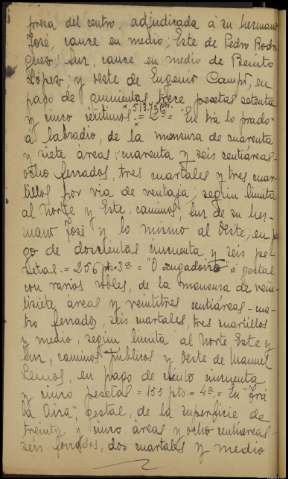 presa del centro, adjudicada a su hermano
José, cauce en medio; Este de Pedro Rodrí
guez; Sur, cauce en medio de Benito
López y Oeste de Eugenio Campo, en
pago de quinientas trece pesetas setenta
y cinco céntimos = 513,75 = 2ª =
a labradío, de la mensura de cuarenta
y siete áreas, cuarenta y seis centiáreas-
ocho ferrados, tres cuartales y tres cuar
tillos por vía de ventaja; según limita
al Norte y Este, caminos; Sur de su her-
mano José y lo mismo al Oeste, en pa
go de doscientas cincuenta y seis pe-
setas. = 256 pts = 3ª = "O a poulal
con varios robles, de la mensura de vein
tisiete áreas y veintitres centiáreas - cua
tro ferrados, seis cuartales, tres cuartillos
y medio, según limita al Norte Este y
Sur, caminos públicos y Oeste de Manuel
Lemos, en pago de ciento cincuenta
y cinco pesetas = 155 pts = 4ª =
da Aira", de la superficie de
treinta y cinco áreas y ocho centiáreas-
seis ferrados, dos cuartales y medio